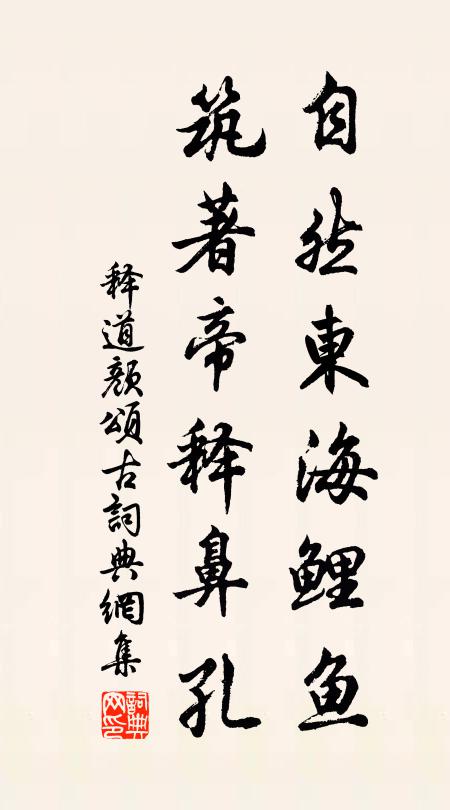 自然東海鯉鱼
筑著帝释鼻孔
释道颜頌古詞典網集
詞典网印